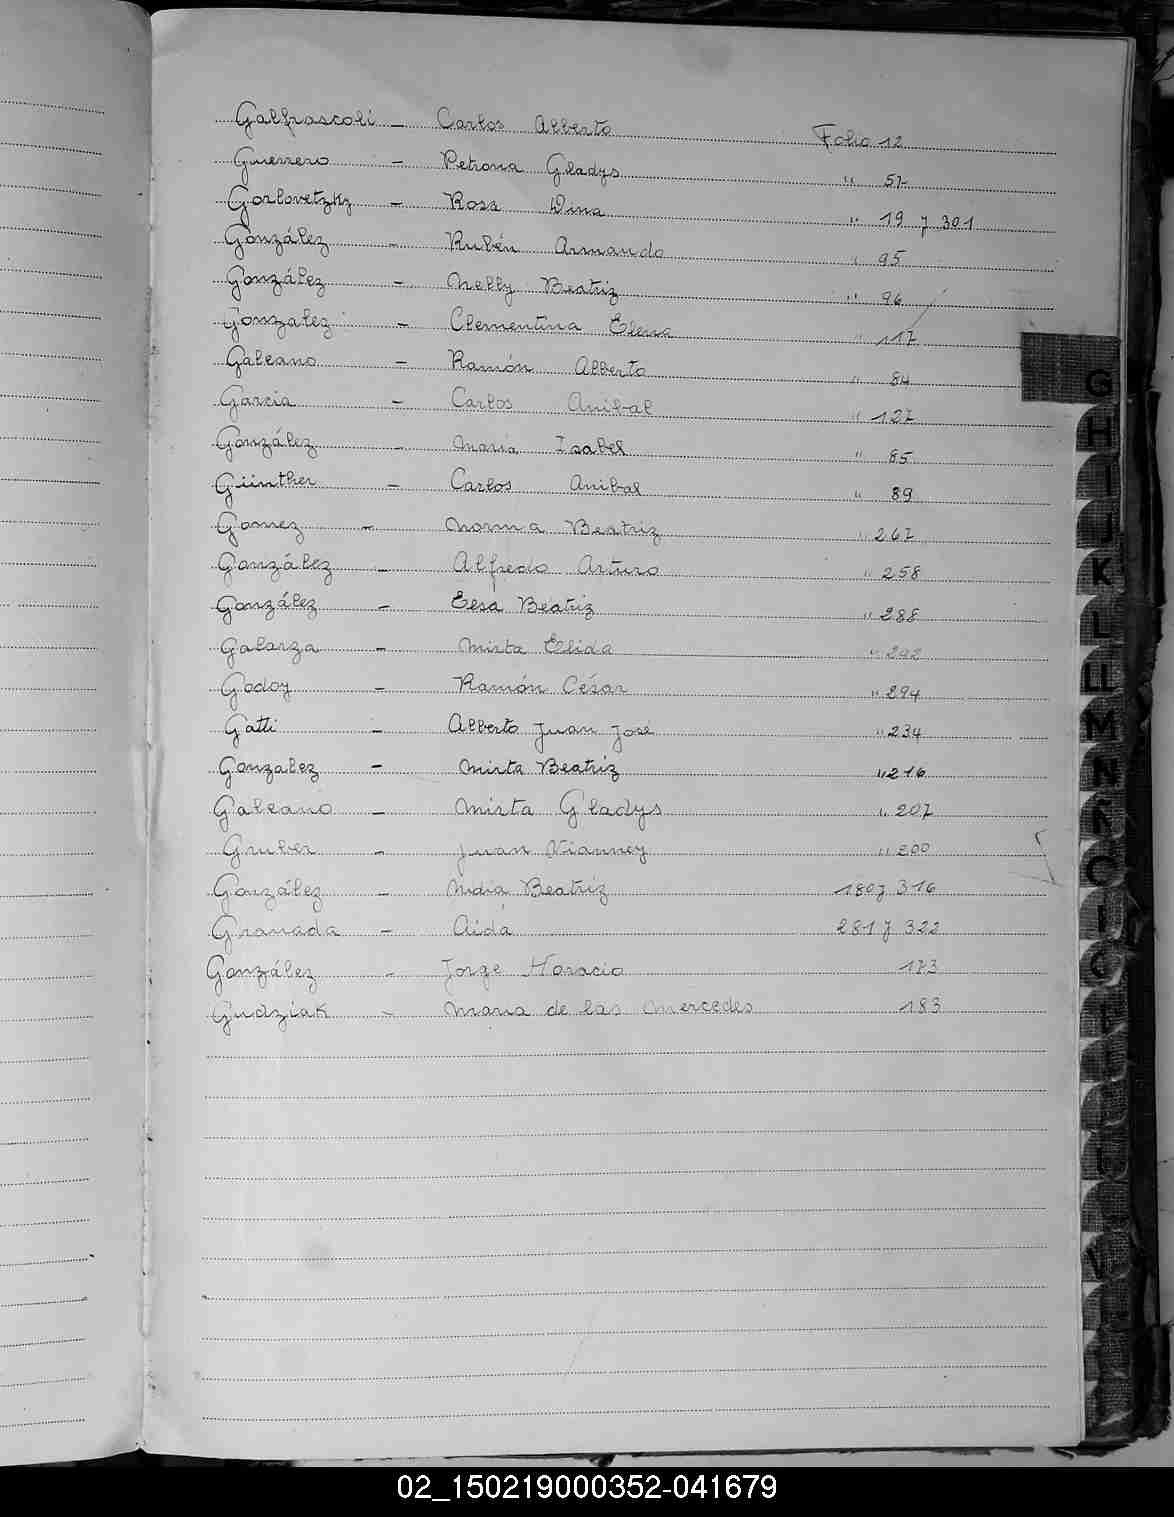 Galfrascoli - Carlos Alberto Folio 12
Guerrero - Petrona Gladys " 57
Gorlovetzky - Rosa Dina " 19 y 301
González - Rubén Armando " 95
González - Nelly Beatriz " 96
Gonzalez - Clementina Elena " 117
Galeano - Ramón Alberto " 84
Garcia - Carlos Anibal " 127
González - Maria Isabel " 85
Günther - Carlos Anibal " 89
Gomez - Norma Beatriz " 267
González - Alfredo Arturo " 258
González - Elsa Beatriz " 288
Galarza - Mirta Elida " 292
Godoy - Ramón César " 294
Gatti - Alberto Juan José " 234
Gonzalez - Mirta Beatriz " 216
Galeano - Mirta Gladys " 207
Gruber - Juan Vianney " 200
González - Nidia Beatriz 180 y 316
Granada - Aida 281 y 322
González - Jorge Horacio 173
Gudziak - Maria de las Mercedes 183
G
H
I
J
K
L
LL
M
N
Ñ
O
02_150219000352-041679